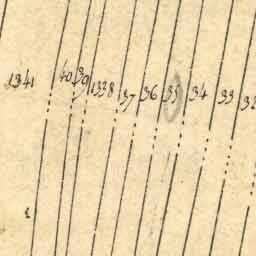 1341 40 39 1338 37 36 35 34 33 32